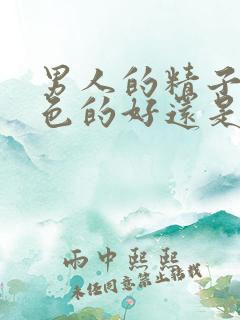 男人的精子
色的好還是
雨中熙熙
未经同意禁止转载